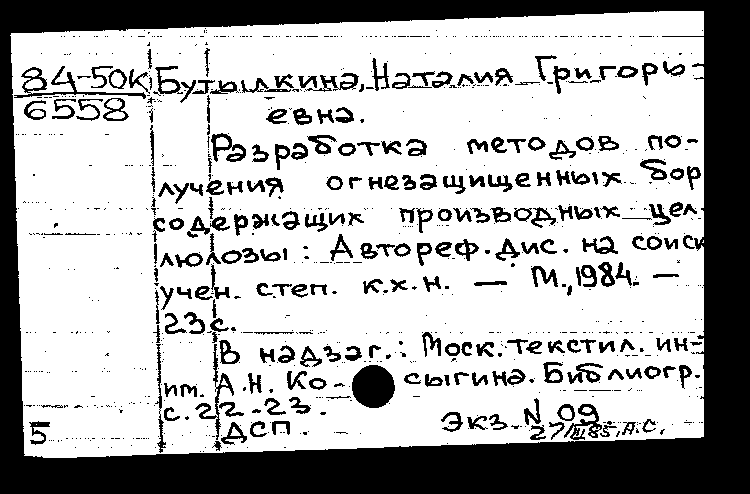 84-50К Бутылкина, Наталия Григорь-
6558 евна.
Разработка методов по-
лучения огнезащищенных бор
содержащих производных цел-
люлозы : Автореф. дис. на соиск
учен. степ. к.х.н. — М., 1984. —
23 с.
В надзаг.: Моск. текстил. ин-
им. А.Н. Ко-сыгина. Библиогр.
с. 22-23.
5 ДСП. Экз. N 09
27/III 85, А.С.